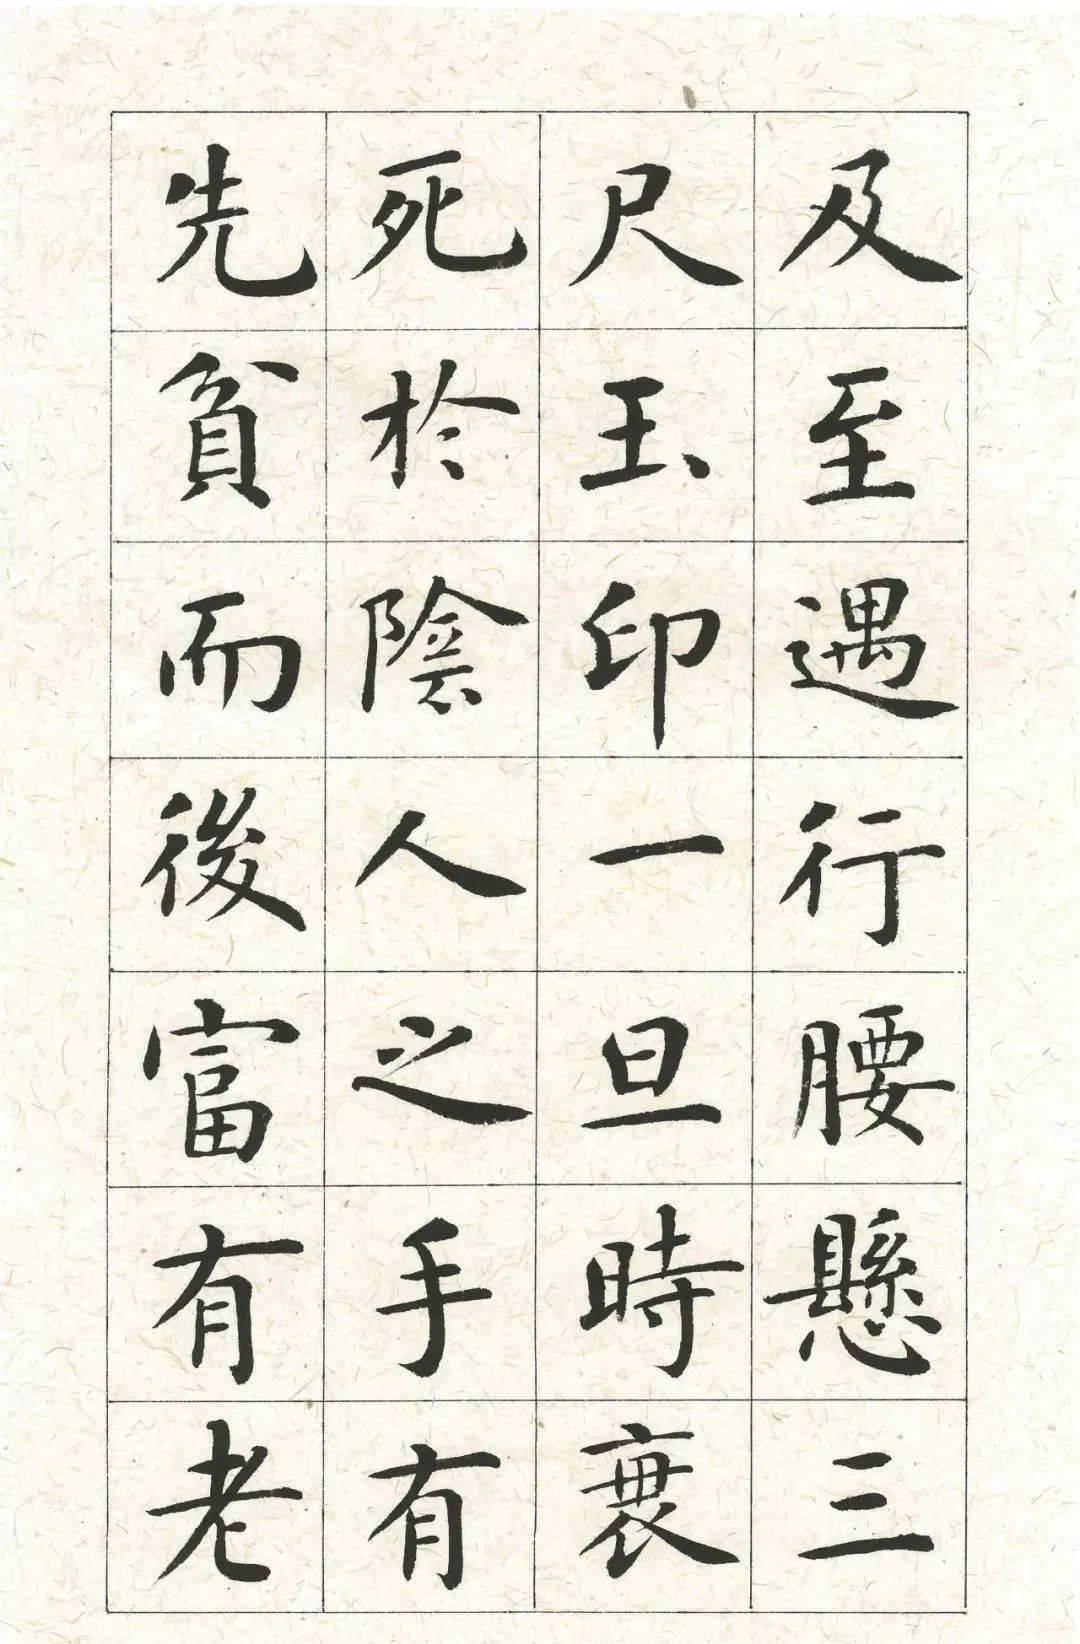 及至遇行腰懸三
尺玉印一旦時衰
死於陰人之手有
先貧而後富有老